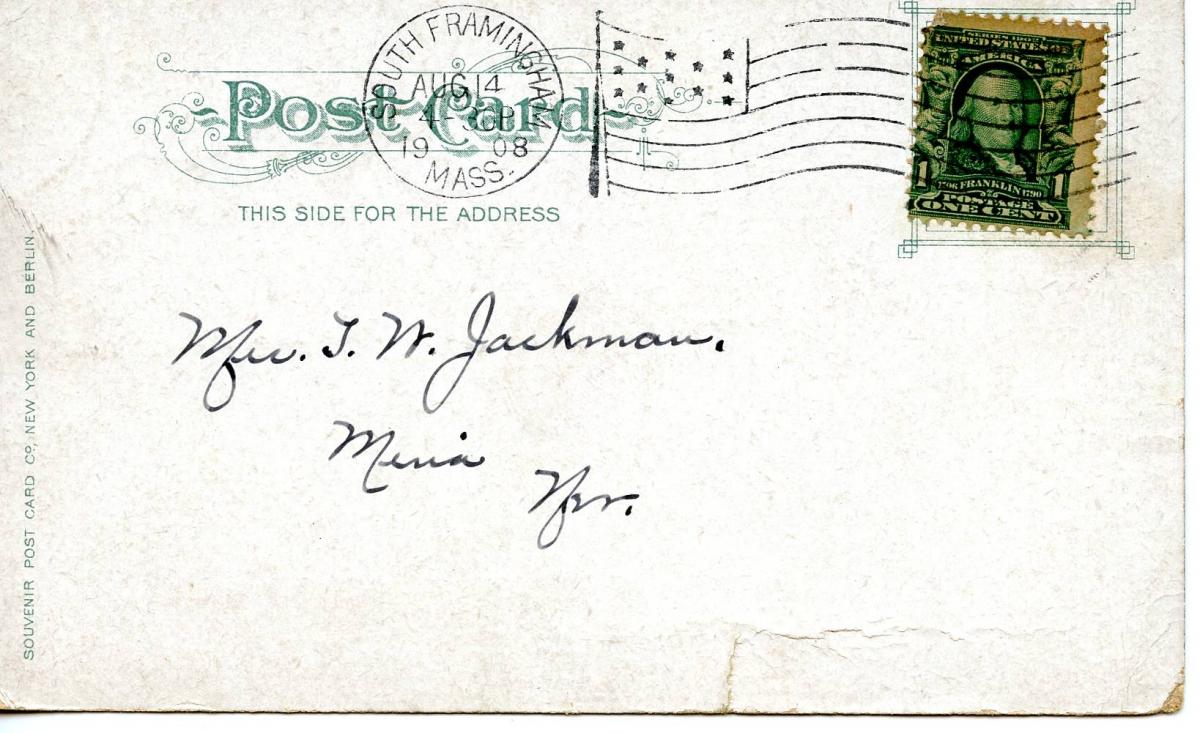 SOUTH FRAMINGHAM
AUG 14
4-30P
19 08
MASS.
Post Card
THIS SIDE FOR THE ADDRESS
SERIES 1902
UNITED STATES OF
AMERICA
1 1
1706 FRANKLIN 1790
POSTAGE
ONE CENT
Mrs. T. W. Jackman.
Merna
Nebr.
SOUVENIR POST CARD CO, NEW YORK AND BERLIN.